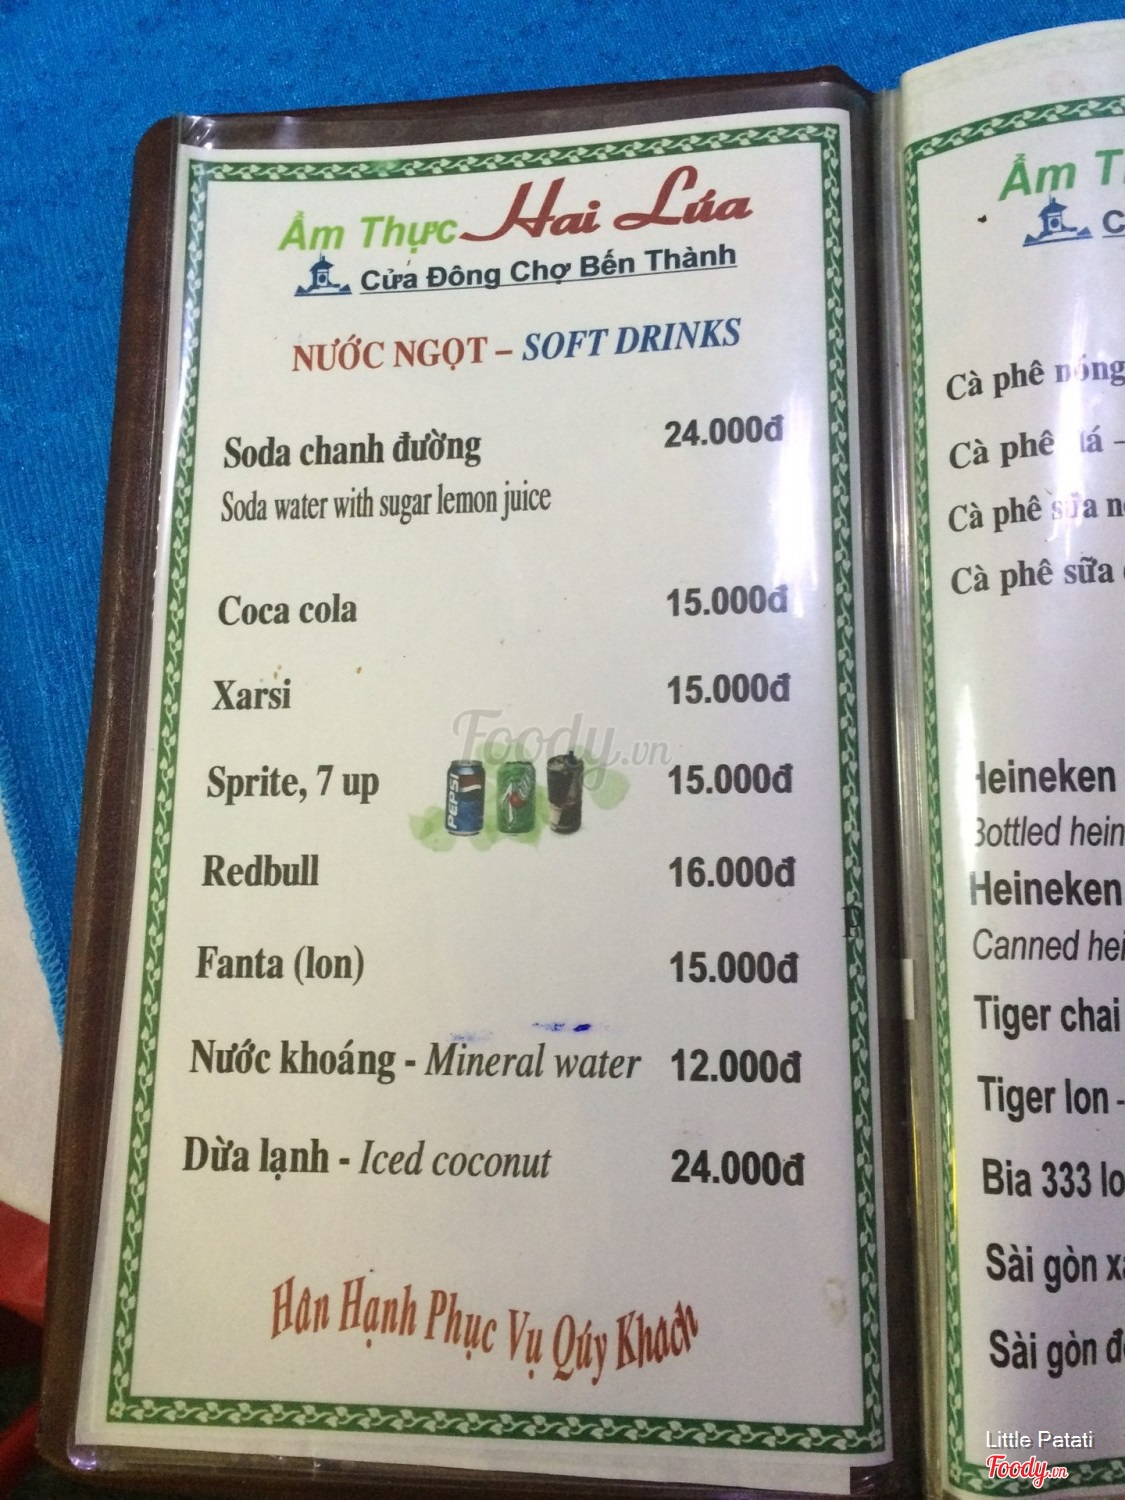 Ẩm Thực Hai Lúa
Cửa Đông Chợ Bến Thành
NƯỚC NGỌT – SOFT DRINKS
Soda chanh đường 24.000đ
Soda water with sugar lemon juice
Coca cola 15.000đ
Xarsi 15.000đ
Foody.vn
Sprite, 7 up 15.000đ
PEPSI
Redbull 16.000đ
Fanta (lon) 15.000đ
Nước khoáng - Mineral water 12.000đ
Dừa lạnh - Iced coconut 24.000đ
Hân Hạnh Phục Vụ Qúy Khách
Ẩm
Cà phê nóng
Cà phê đá -
Cà phê sữa
Cà phê sữa
Heineken
Bottled
Heineken
Canned
Tiger chai
Tiger lon -
Bia 333
Sài gòn
Sài gòn
Little Patati
Foody.vn